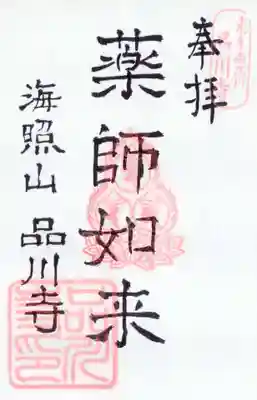 奉拝
薬師如来
海照山 品川寺